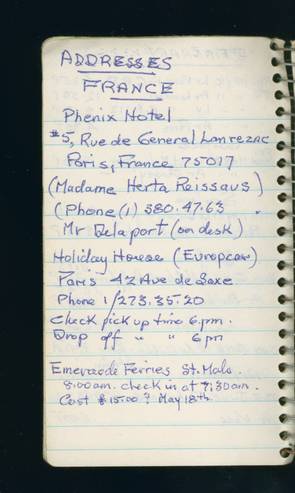 ADDRESSES
FRANCE
Phenix Hotel
#5, Rue de General Lanrezac
Paris, France 75017
(Madame Herta Reissaus)
(Phone (1) 380.47.63
Mr Delaport (on desk)
Holiday House (Europcar)
Paris 42 Ave de Saxe
Phone 1/273.35.20
Check pick up time 6.pm.
Drop off " " 6 pm
Emeraude Ferries St. Malo.
8:00 am. check in at 7:30 am.
Cost $15.00 ? May 18th